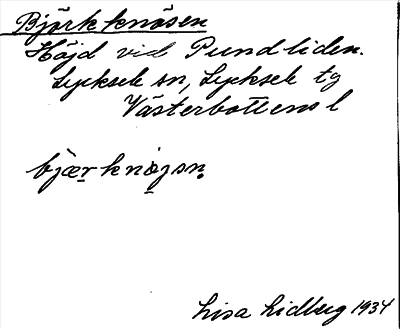 Björkknösen
Höjd vid Pundliden.
Lycksele sn, Lycksele tg
Västerbottens l
bjærknøjsn
Lisa Lidberg 1934